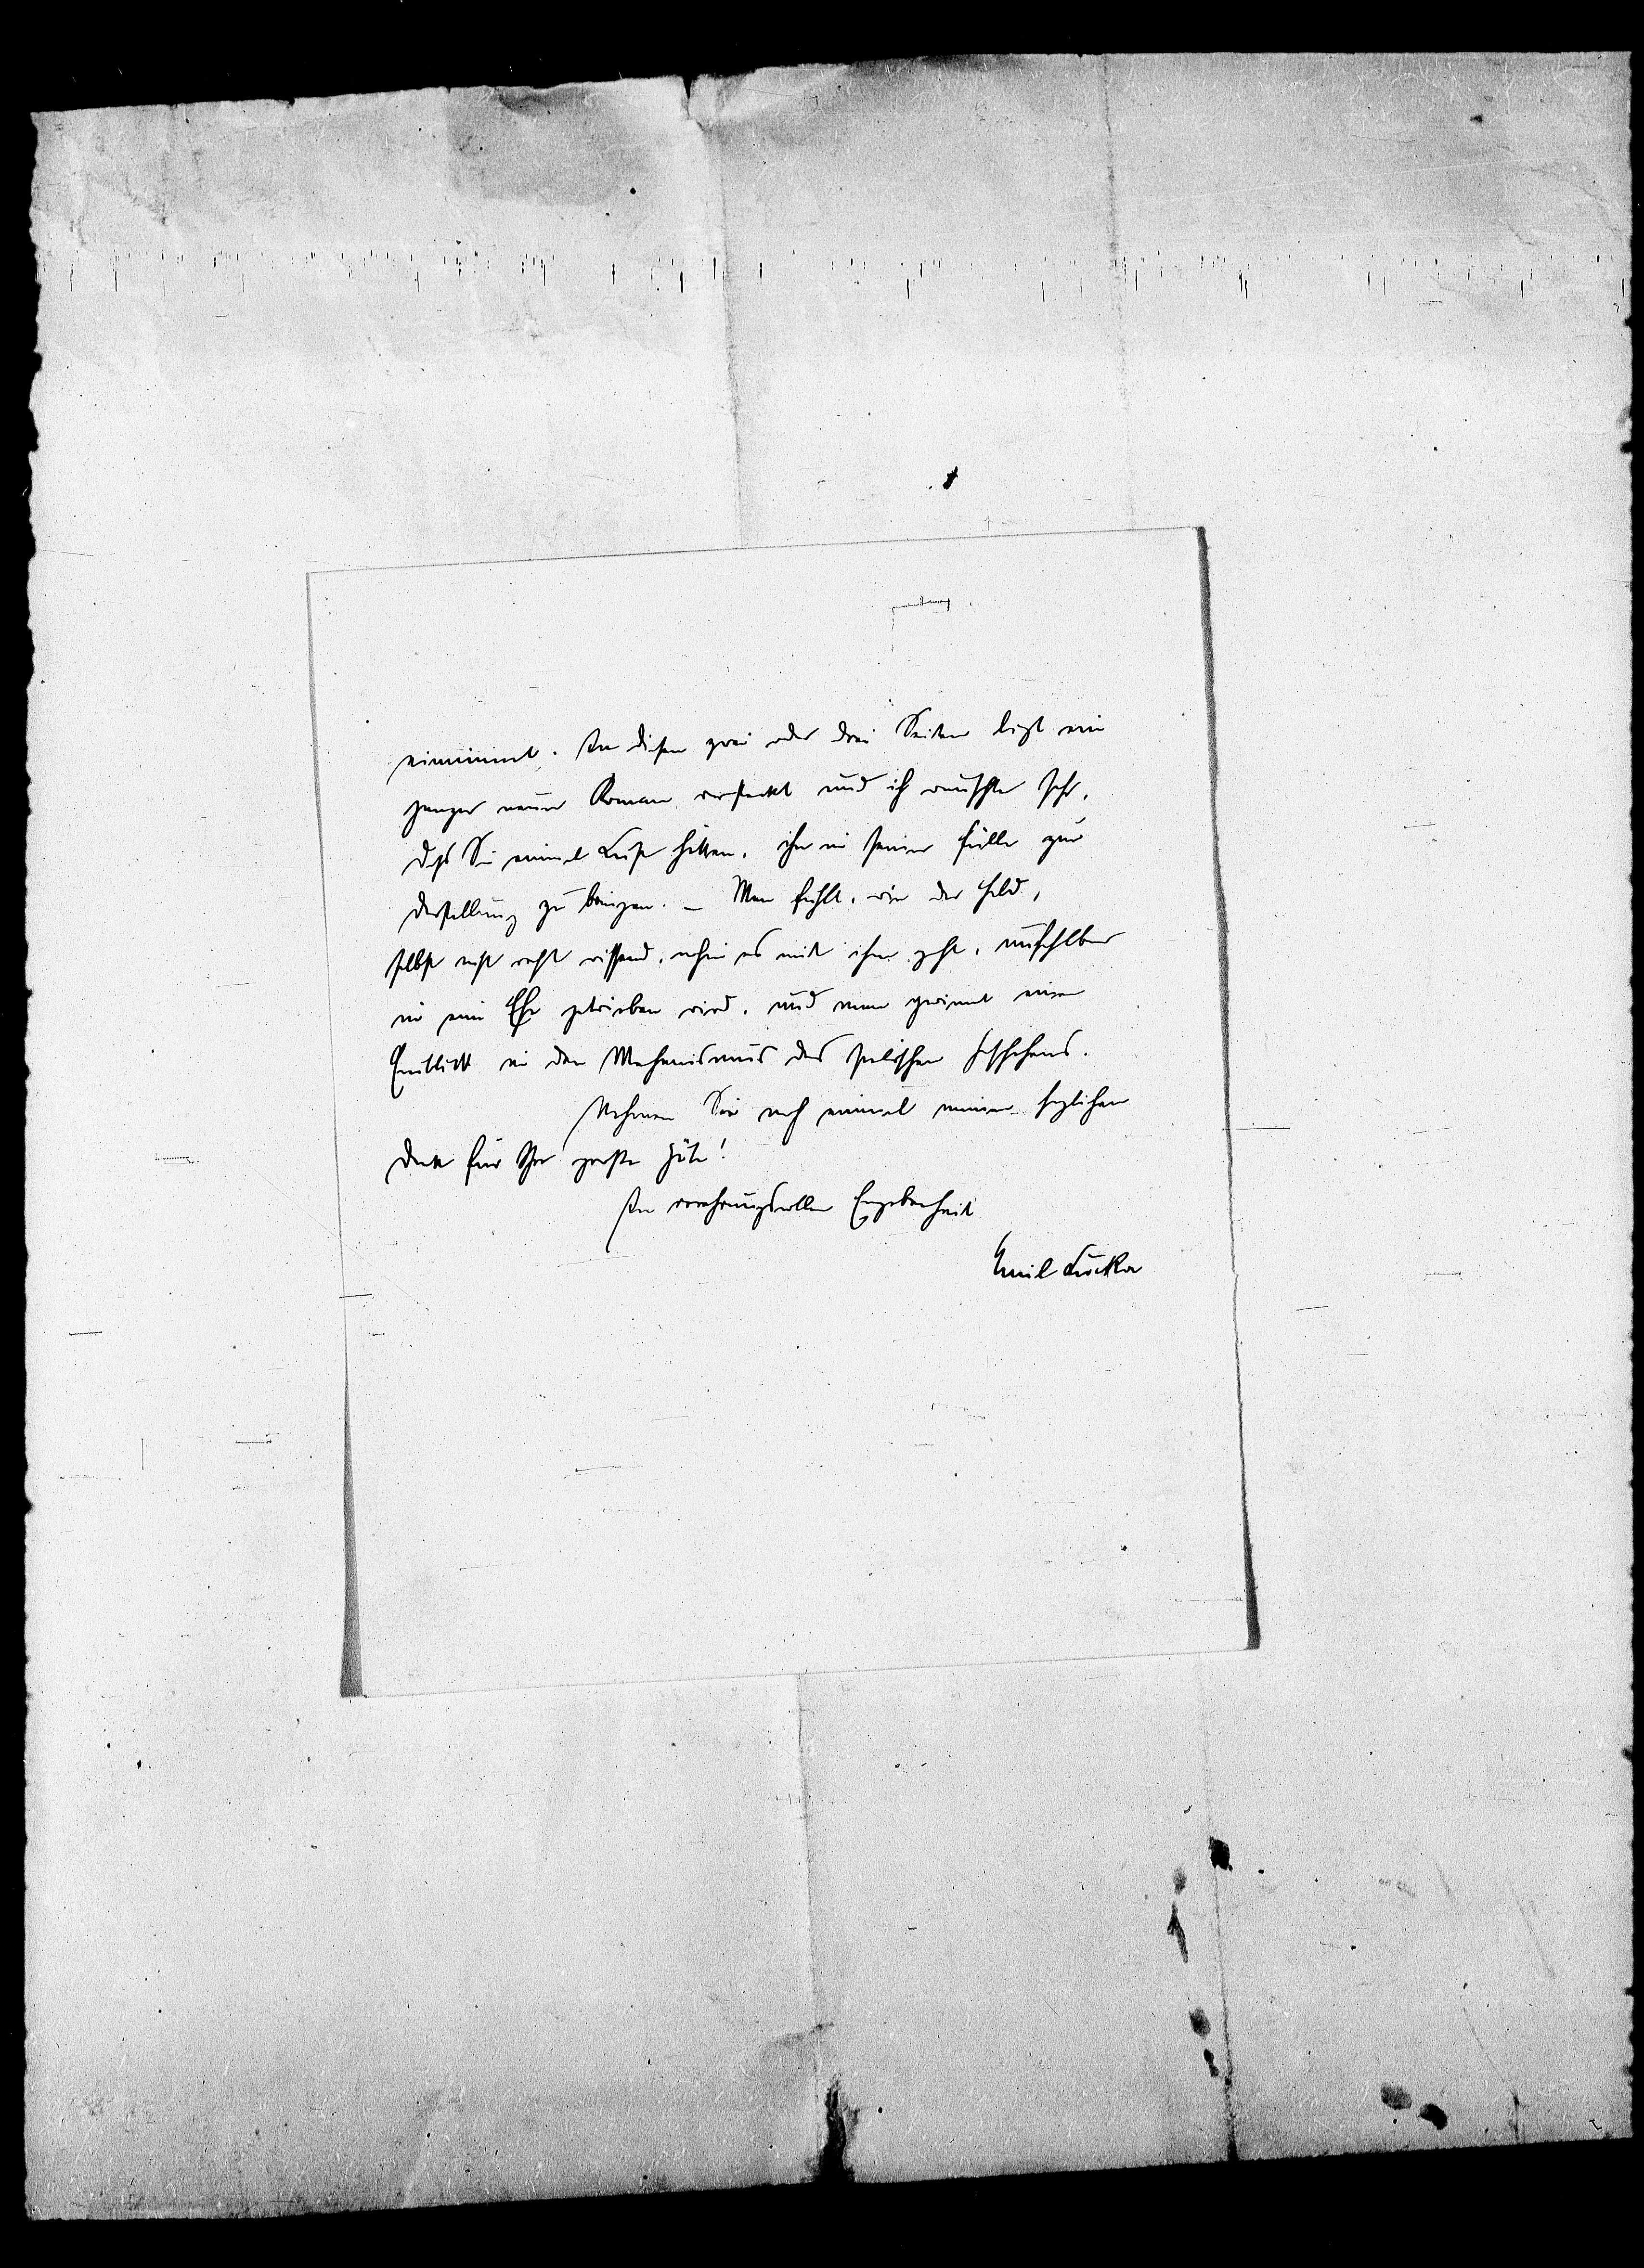 einnimmt. In diesen zwei oder drei Seiten liegt ein
ganzer neuer Roman versteckt und ich wünschte sehr,
dass Sie einmal Lust hätten, ihn in seiner Fülle zur
Darstellung zu bringen. – Man fühlt, wie der Held,
selbst nicht recht wissend, wohin es mit ihm geht, unfehlbar
in eine Ehe getrieben wird, und man gewinnt einen
Einblick in den Mechanismus des seelischen Geschehens.
Nehmen Sie noch einmal meinen herzlichen
Dank für Ihre große Güte!
In verehrungsvoller Ergebenheit
Emil Lucka